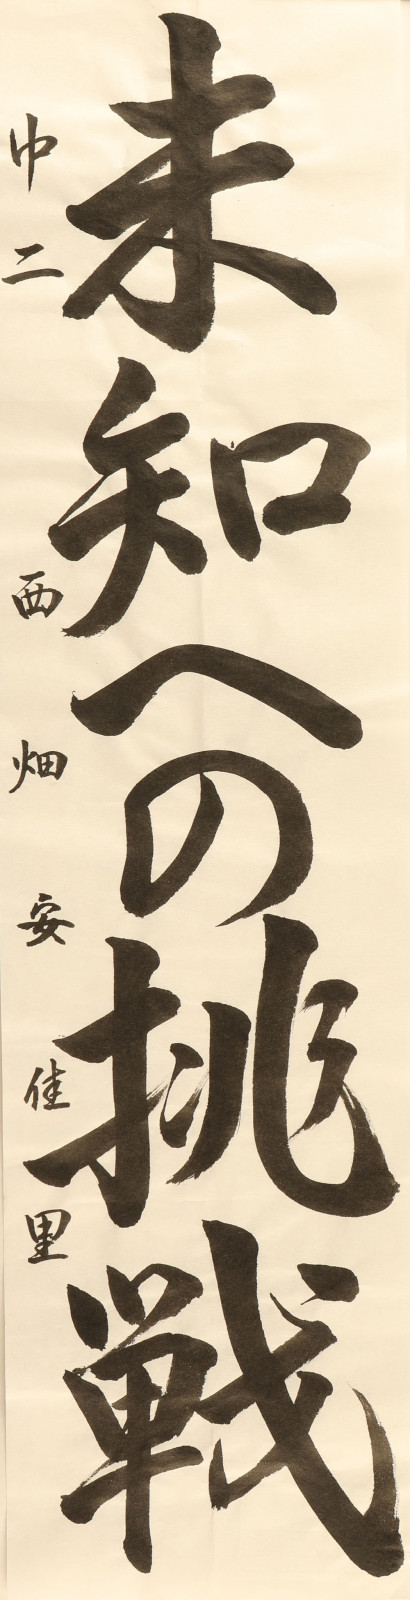 未知への挑戦
中二 西畑安佳里